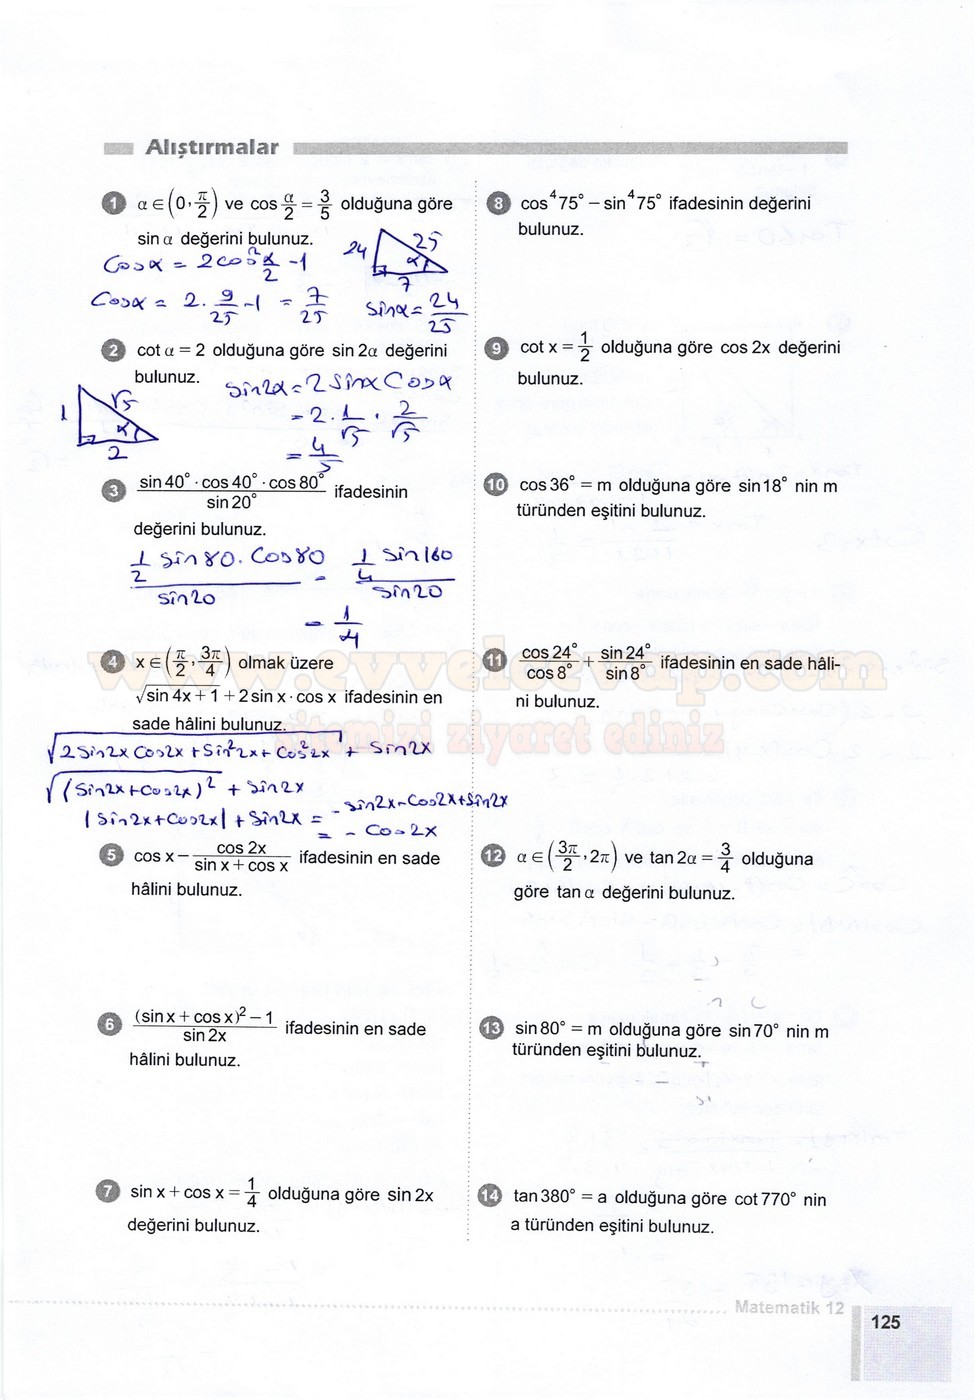 Alıştırmalar
1 α ∈ (0, π/2) ve cos α/2 = 3/5 olduğuna göre
sin α değerini bulunuz.
Cosα = 2cos²α/2 - 1
24 25 α 7
Cosα = 2 . 9/25 - 1 = 7/25 sinα = 24/25
2 cot α = 2 olduğuna göre sin 2α değerini
bulunuz.
sin2α = 2 sinα Cosα
1 √5 α 2
= 2 . 1/√5 . 2/√5
= 4/5
3 sin 40° · cos 40° · cos 80° / sin 20° ifadesinin
değerini bulunuz.
1/2 sin80 . Cos80 / sin20 = 1/4 sin160 / sin20
= 1/4
4 x ∈ (π/2, 3π/4) olmak üzere
√sin 4x + 1 + 2 sin x · cos x ifadesinin en
sade hâlini bulunuz.
√2 Sin2x Cos2x + Sin²2x + Cos²2x + Sin2x
√(Sin2x + Cos2x)² + Sin2x
|Sin2x + Cos2x| + Sin2x = - sin2x - Cos2x + Sin2x
= - Cos2x
5 cos x – cos 2x / sin x + cos x ifadesinin en sade
hâlini bulunuz.
6 (sin x + cos x)² – 1 / sin 2x ifadesinin en sade
hâlini bulunuz.
7 sin x + cos x = 1/4 olduğuna göre sin 2x
değerini bulunuz.
8 cos⁴75° – sin⁴75° ifadesinin değerini
bulunuz.
9 cot x = 1/2 olduğuna göre cos 2x değerini
bulunuz.
10 cos 36° = m olduğuna göre sin 18° nin m
türünden eşitini bulunuz.
11 cos 24° / cos 8° + sin 24° / sin 8° ifadesinin en sade hâli-
ni bulunuz.
12 α ∈ (3π/2, 2π) ve tan 2α = 3/4 olduğuna
göre tan α değerini bulunuz.
13 sin 80° = m olduğuna göre sin 70° nin m
türünden eşitini bulunuz.
14 tan 380° = a olduğuna göre cot 770° nin
a türünden eşitini bulunuz.
www.evvelcevap.com
sitemizi ziyaret ediniz
Matematik 12
125